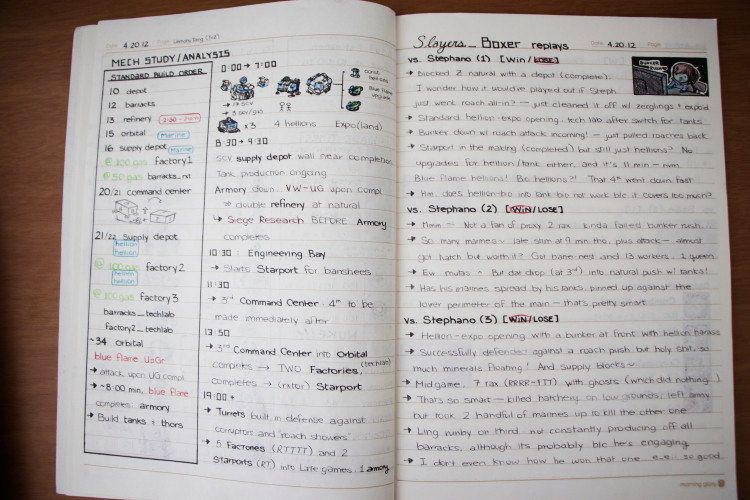 Date 4.20.12 Page
MECH STUDY/ANALYSIS
STANDARD BUILD ORDER
10 depot
12 barracks
13 refinery
15 orbital Marine
16 supply depot Marine
@ 100 gas factory1
@ 50 gas barracks_rxt
20/21 command center
21/22 supply depot
hellion
hellion
@ 100 gas factory2
hellion
hellion
@ 100 gas factory3
barracks_techlab
factory2_techlab
~34 orbital
blue flame UpGr
→ attack upon UG compl
→ ~8:00 min, blue flame
completes; armory
→ Build tanks + thors
0:00 → 7:00
Blue Flame
upgrade
→ 17 scv
→ 3 scv/gas
x3 4 hellions Expo(land)
8:30 → 9:30
scv supply depot wall near completion
Tank production ongoing
Armory down. VW-UG upon compl
→ double refinery at natural
↳ Siege Research BEFORE Armory
completes
10:30 : Engineering Bay
→ Starts Starport for banshees
11:30
→ 3rd Command Center. 4th to be
made immediately after
13:50
→ 3rd Command Center into Orbital
completes → TWO Factories, (techlab)
completes → (rxtor) Starport
19:00 +
→ Turrets built in defense against
corruptors and roach showers
→ 5 Factories (RTTTT) and 2
Starports (RT) into Late games. 1 armory
Slayers_Boxer replays
Date 4.20.12 Page
vs. Stephano (1) [Win/LOSE]
→ Blocked Z natural with a depot (complete).
I wonder how it would've played out if Steph.
just went roach all-in? — just cleaned it off w/ zerglings + expo'd
→ Standard hellion-expo opening. tech lab after switch for tanks
→ Bunker down w/ roach attack incoming! — just pulled roaches back
→ Starport in the making (completed) but still just hellions? No
upgrades for hellion/tank either, and it's 11 min – nvm.
Blue flame hellions! Bio hellions?! That 4th went down fast
→ Hm, does hellion-bio into tank-bio not work b/c it covers too much?
vs. Stephano (2) [Win/LOSE]
→ Not a fan of proxy 2 rax. kinda failed bunker rush...
→ So many marines ~ late stim at 9 min tho, plus attack – almost
got hatch but worth it? Got bane-nest and 13 workers, 1 queen
→ Ew mutas ^ But dat drop (at 3rd) into natural push w/ tanks!
→ Has his marines spread by his tanks, pinned up against the
lower perimeter of the main – that's pretty smart
vs. Stephano (3) [Win/LOSE]
→ Hellion-expo opening with a bunker at front with hellion harass
→ Successfully defended against a roach push but holy shit, so
much minerals floating! And supply blocks ~
→ Midgame, 7 rax (RRRR-TTT) with ghosts (which did nothing..)
→ That's so smart – killed hatchery on low grounds, left army
but took 2 handful of marines up to kill the other one
→ Ling runby on third, not constantly producing off all
barracks, although its probably b/c he's engaging
→ I don't even know how he won that one e_e.. so good
morning glory